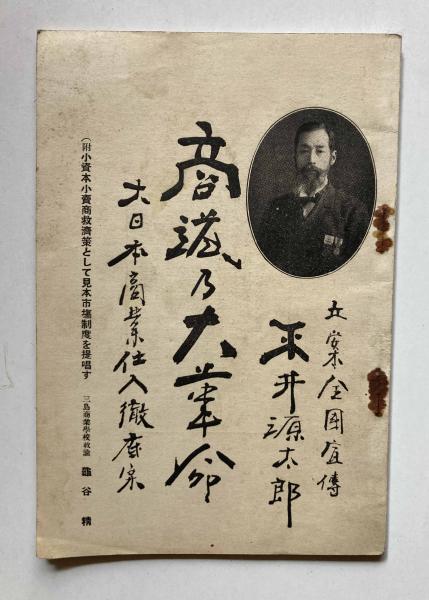 立案全国宣傳
平井源太郎
商道乃大革命
大日本商業仕入徹底策
(附小資本小賣商救濟策として見本市塲制度を提唱す
三島商業學校教諭 龜谷精